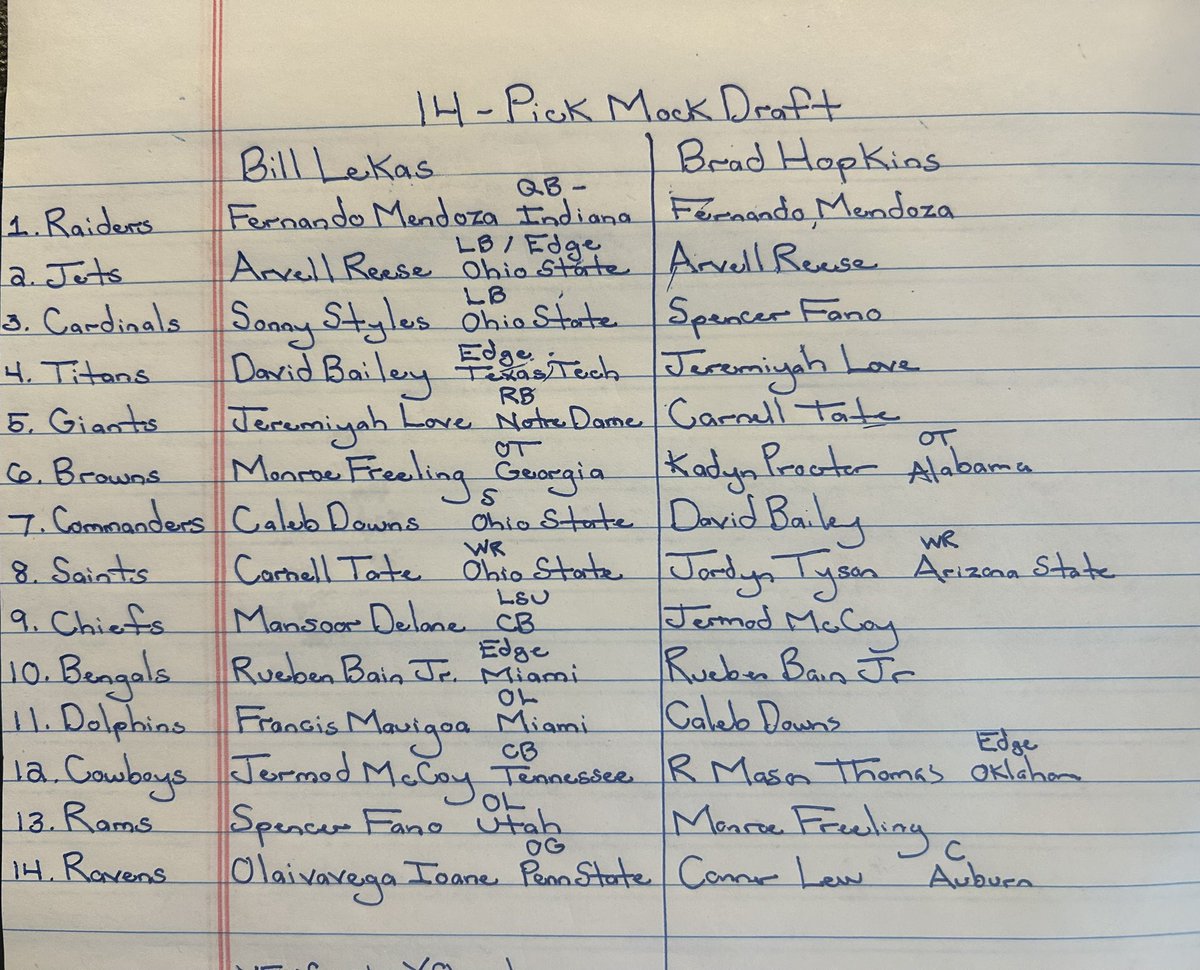 14-Pick Mock Draft
Bill Lekas Brad Hopkins
QB -
1. Raiders Fernando Mendoza Indiana Fernando Mendoza
LB / Edge
2. Jets Arvell Reese Ohio State Arvell Reese
LB
3. Cardinals Sonny Styles Ohio State Spencer Fano
Edge
4. Titans David Bailey Texas Tech Jeremiyah Love
RB
5. Giants Jeremiyah Love Notre Dame Carnell Tate
OT OT
6. Browns Monroe Freeling Georgia Kadyn Procter Alabama
S
7. Commanders Caleb Downs Ohio State David Bailey
WR WR
8. Saints Carnell Tate Ohio State Jordyn Tyson Arizona State
LSU
9. Chiefs Mansoor Delane CB Jermod McCoy
Edge
10. Bengals Rueben Bain Jr. Miami Rueben Bain Jr
OL
11. Dolphins Francis Mauigoa Miami Caleb Downs
CB Edge
12. Cowboys Jermod McCoy Tennessee R Mason Thomas Oklahom
OL
13. Rams Spencer Fano Utah Monroe Freeling
OG C
14. Ravens Olaivavega Ioane Penn State Conner Lew Auburn